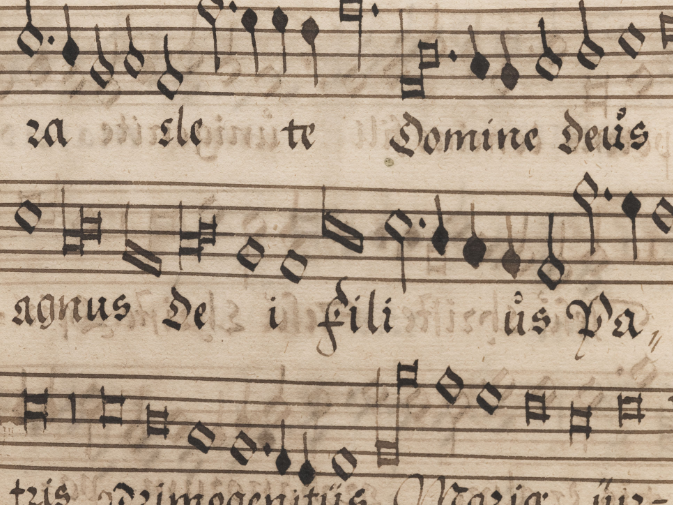 ra cle te Domine deůs
agnus De i Fili ůs Pa„
tris Primogenitůs Mariæ ůir-